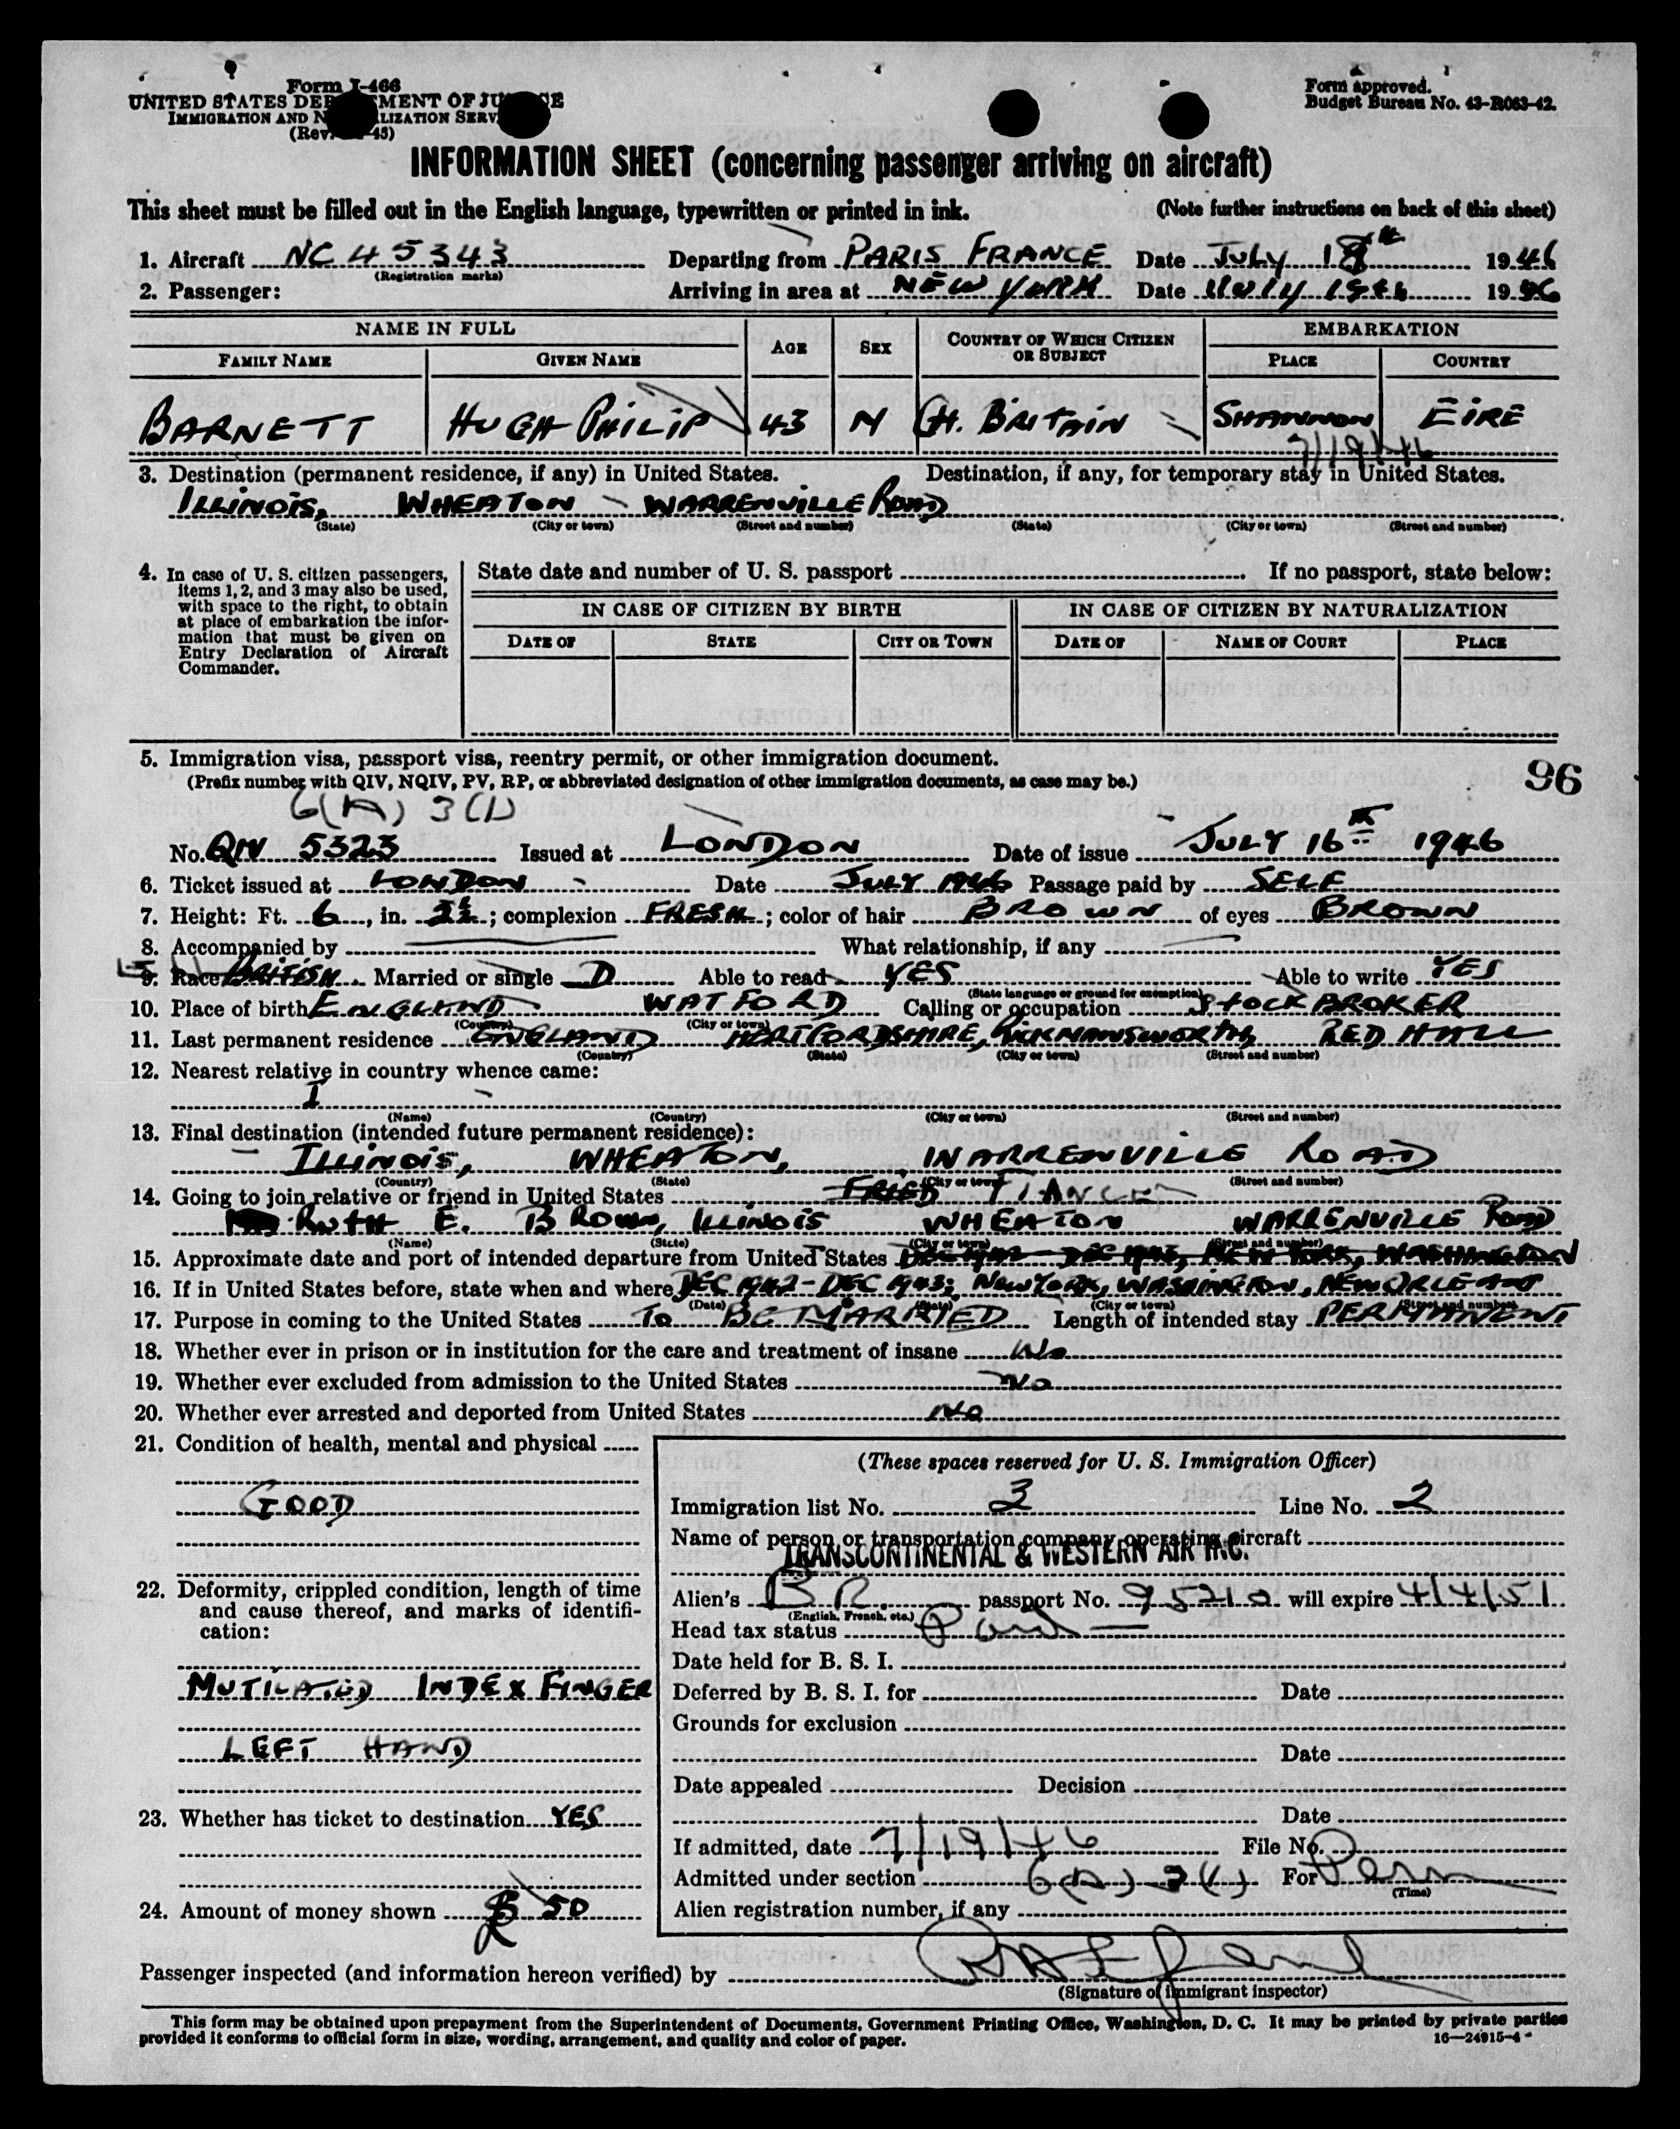 Form I-466
UNITED STATES DEPARTMENT OF JUSTICE
IMMIGRATION AND NATURALIZATION SERVICE
(Rev. -45)
Form approved.
Budget Bureau No. 43-R063-42.
INFORMATION SHEET (concerning passenger arriving on aircraft)
This sheet must be filled out in the English language, typewritten or printed in ink. (Note further instructions on back of this sheet)
1. Aircraft NC 45343 Departing from PARIS FRANCE Date JULY 18th 1946
(Registration marks)
2. Passenger: Arriving in area at NEW YORK Date JULY 1946 1946
NAME IN FULL AGE SEX COUNTRY OF WHICH CITIZEN OR SUBJECT EMBARKATION
FAMILY NAME GIVEN NAME PLACE COUNTRY
BARNETT HUGH PHILIP 43 M Gt. BRITAIN SHANNON EIRE
7/19/46
3. Destination (permanent residence, if any) in United States. Destination, if any, for temporary stay in United States.
ILLINOIS, WHEATON WARRENVILLE ROAD
(State) (City or town) (Street and number) (State) (City or town) (Street and number)
4. In case of U. S. citizen passengers, items 1, 2, and 3 may also be used, with space to the right, to obtain at place of embarkation the information that must be given on Entry Declaration of Aircraft Commander.
State date and number of U. S. passport If no passport, state below:
IN CASE OF CITIZEN BY BIRTH IN CASE OF CITIZEN BY NATURALIZATION
DATE OF STATE CITY OR TOWN DATE OF NAME OF COURT PLACE
5. Immigration visa, passport visa, reentry permit, or other immigration document.
(Prefix number with QIV, NQIV, PV, RP, or abbreviated designation of other immigration documents, as case may be.)
96
6(A) 3(1)
No. QIV 5323 Issued at LONDON Date of issue JULY 16th 1946
6. Ticket issued at LONDON Date JULY 1946 Passage paid by SELF
7. Height: Ft. 6, in. 2½; complexion FRESH; color of hair BROWN of eyes BROWN
8. Accompanied by What relationship, if any
9. Race BRITISH Married or single D Able to read YES Able to write YES
(State language or ground for exemption)
10. Place of birth ENGLAND WATFORD Calling or occupation STOCKBROKER
(Country) (City or town)
11. Last permanent residence ENGLAND HERTFORDSHIRE, RICKMANSWORTH, RED HALL
(Country) (State) (City or town) (Street and number)
12. Nearest relative in country whence came:
(Name) (Country) (City or town) (Street and number)
13. Final destination (intended future permanent residence):
ILLINOIS, WHEATON, WARRENVILLE ROAD
(Country) (State) (City or town) (Street and number)
14. Going to join relative or friend in United States FIANCEE
RUTH E. BROWN, ILLINOIS WHEATON WARRENVILLE ROAD
(Name) (State) (City or town) (Street and number)
15. Approximate date and port of intended departure from United States DEC 1942 - DEC 1943, NEW YORK, WASHINGTON
16. If in United States before, state when and where DEC 1942 - DEC 1943; NEW YORK, WASHINGTON, NEW ORLEANS
(Date) (State) (City or town) (Street and number)
17. Purpose in coming to the United States TO BE MARRIED Length of intended stay PERMANENT
18. Whether ever in prison or in institution for the care and treatment of insane NO
19. Whether ever excluded from admission to the United States NO
20. Whether ever arrested and deported from United States NO
21. Condition of health, mental and physical
GOOD
22. Deformity, crippled condition, length of time and cause thereof, and marks of identification:
MUTILATED INDEX FINGER
LEFT HAND
23. Whether has ticket to destination YES
24. Amount of money shown $ 50
(These spaces reserved for U. S. Immigration Officer)
Immigration list No. 3 Line No. 2
Name of person or transportation company operating aircraft
TRANSCONTINENTAL & WESTERN AIR INC.
Alien's BR. passport No. 95210 will expire 4/4/51
(English, French, etc.)
Head tax status Paid
Date held for B. S. I.
Deferred by B. S. I. for Date
Grounds for exclusion
Date
Date appealed Decision
Date
If admitted, date 7/19/46 File No.
Admitted under section 6(A) 3(1) For Perm
(Time)
Alien registration number, if any
Passenger inspected (and information hereon verified) by
(Signature of immigrant inspector)
This form may be obtained upon prepayment from the Superintendent of Documents, Government Printing Office, Washington, D. C. It may be printed by private parties
provided it conforms to official form in size, wording, arrangement, and quality and color of paper. 16—24915-4